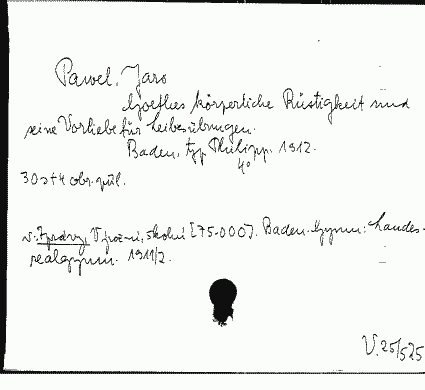 Pawel, Jaro
Goethes körperliche Rüstigkeit und
seine Vorliebe für Leibesübungen.
Baden, typ Philipp. 1912.
4°
30 s + 4 obr. příl.
v. Zprávy, V. školní [75-000]. Baden. Gymn: Landes-
realgymn. 1911/2.
V.25/525